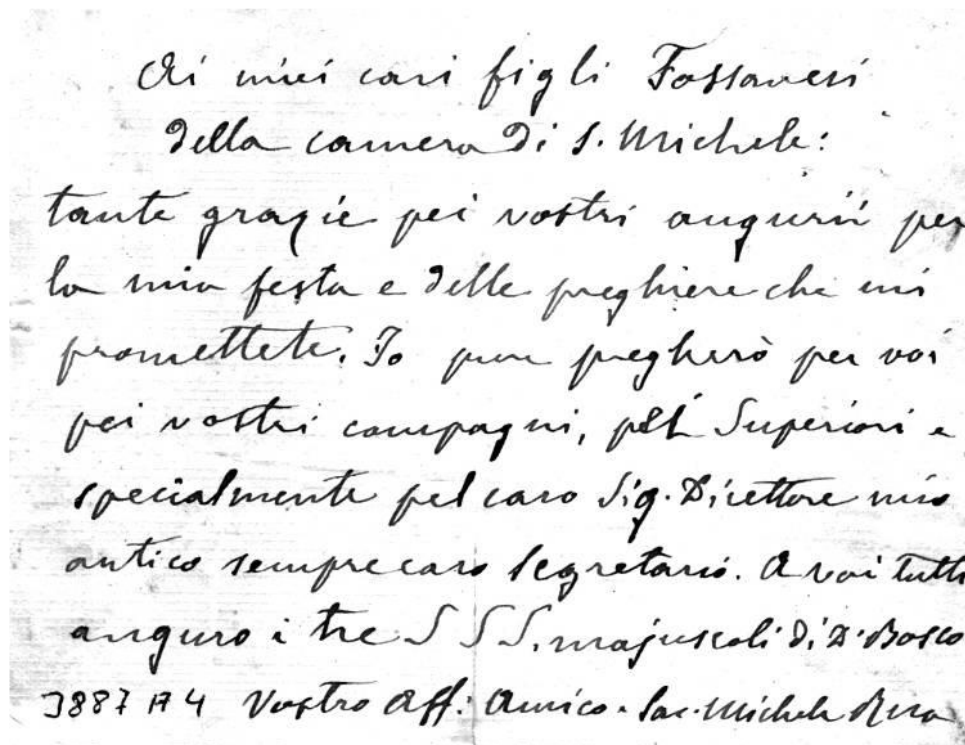 Ai miei cari figli Fossanesi
della camera di S. Michele:
tante grazie pei vostri augurii per
la mia festa e delle preghiere che mi
promettete. Io pure pregherò per voi
pei vostri compagni, pei Superiori e
specialmente pel caro Sig. Direttore mio
antico sempre caro segretario. A voi tutti
auguro i tre S S S. majuscoli di D. Bosco
3887 A 4 Vostro Aff: Amico. Sac. Michele Rua